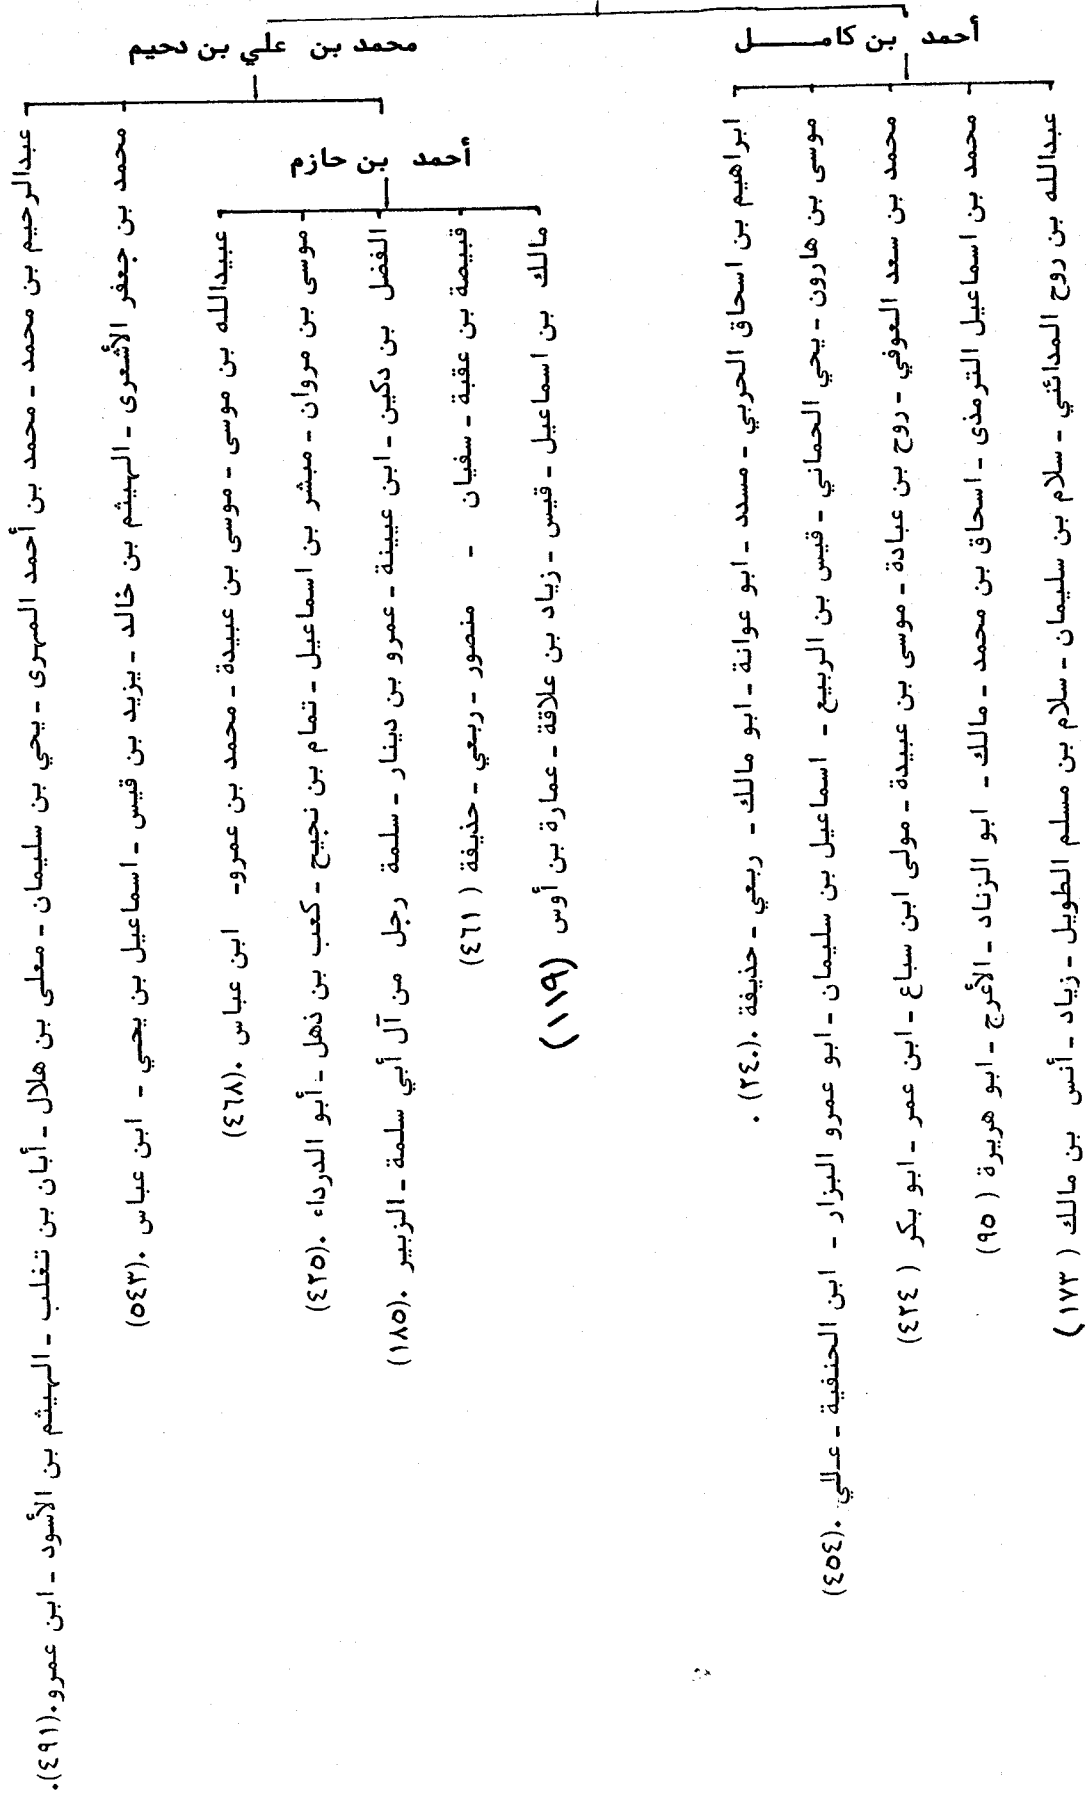 أحمد بن كامل
محمد بن علي بن دحيم
عبدالله بن روح المدائني - سلام بن سليمان - سلام بن مسلم الطويل - زياد - أنس بن مالك (١٧٣)
محمد بن اسماعيل الترمذى - اسحاق بن محمد - مالك - ابو الزناد - الأعرج - ابو هريرة (٩٥)
محمد بن سعد العوفي - روح بن عبادة - موسى بن عبيدة - مولى ابن سباع - ابن عمر - ابو بكر (٤٢٤)
موسى بن هارون - يحي الحماني - قيس بن الربيع - اسماعيل بن سليمان - ابو عمرو البزار - ابن الحنفية - علي .(٤٥٤)
ابراهيم بن اسحاق الحربي - مسدد - ابو عوانة - ابو مالك - ربعي - حذيفة .(٢٤٠) .
أحمد بن حازم
مالك بن اسماعيل - قيس - زياد بن علاقة - عمارة بن أوس (١١٩)
قبيصة بن عقبة - سفيان - منصور - ربعي - حذيفة (٤٦١)
الفضل بن دكين - ابن عيينة - عمرو بن دينار - سلمة رجل من آل أبي سلمة - الزبير .(١٨٥)
موسى بن مروان - مبشر بن اسماعيل - تمام بن نجيح - كعب بن ذهل - أبو الدرداء .(٤٢٥)
عبيدالله بن موسى - موسى بن عبيدة - محمد بن عمرو - ابن عباس .(٤٦٨)
محمد بن جعفر الأشعرى - الهيثم بن خالد - يزيد بن قيس - اسماعيل بن يحي - ابن عباس .(٥٤٣)
عبدالرحيم بن محمد - محمد بن أحمد المهرى - يحي بن سليمان - معلى بن هلال - أبان بن تغلب - الهيثم بن الأسود - ابن عمرو.(٤٩١).